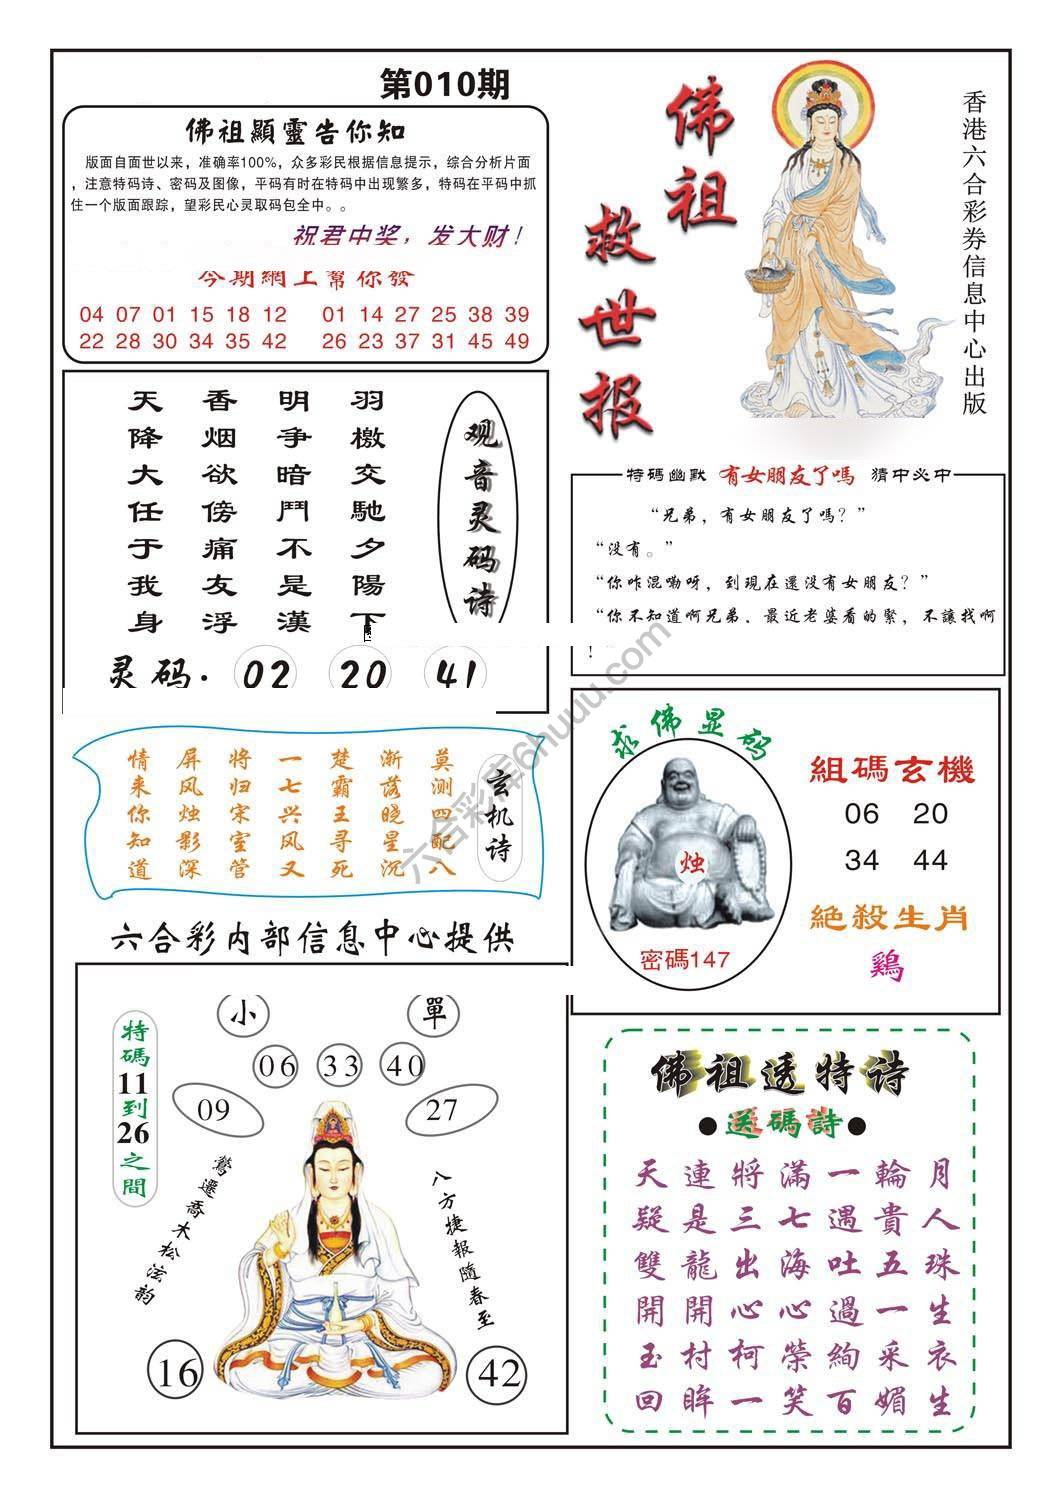 第010期
佛祖顯靈告你知
版面自面世以来，准确率100%，众多彩民根据信息提示，综合分析片面
，注意特码诗、密码及图像，平码有时在特码中出现繁多，特码在平码中抓
住一个版面跟踪，望彩民心灵取码包全中。。
祝君中奖，发大财！
今期網上幫你發
04 07 01 15 18 12 01 14 27 25 38 39
22 28 30 34 35 42 26 23 37 31 45 49
佛祖
救世报
香港六合彩券信息中心出版
羽檄交馳夕陽下
明争暗鬥不是漢
香烟欲傍痛友浮
天降大任于我身
观音灵码诗
灵码：02 20 41
特碼幽默 有女朋友了嗎 猜中必中
“兄弟，有女朋友了嗎？”
“没有。”
“你咋混嘞呀，到現在還没有女朋友？”
“你不知道啊兄弟，最近老婆看的緊，不讓找啊
！”
玄机诗
莫测四配八
渐落晓星沉
楚霸王寻死
一七兴风又
将归宋室管
屏风烛影深
情来你知道
求佛显码
烛
密碼147
組碼玄機
06 20
34 44
絕殺生肖
鷄
六合彩内部信息中心提供
小 單
06 33 40
09 27
特碼11到26之間
鶯遷喬木松泫韵
八方捷報隨春至
16 42
佛祖透特诗
●送碼詩●
天連將滿一輪月
疑是三七遇貴人
雙龍出海吐五珠
開開心心過一生
玉村柯榮絢采衣
回眸一笑百媚生
六合彩库6huuu.com